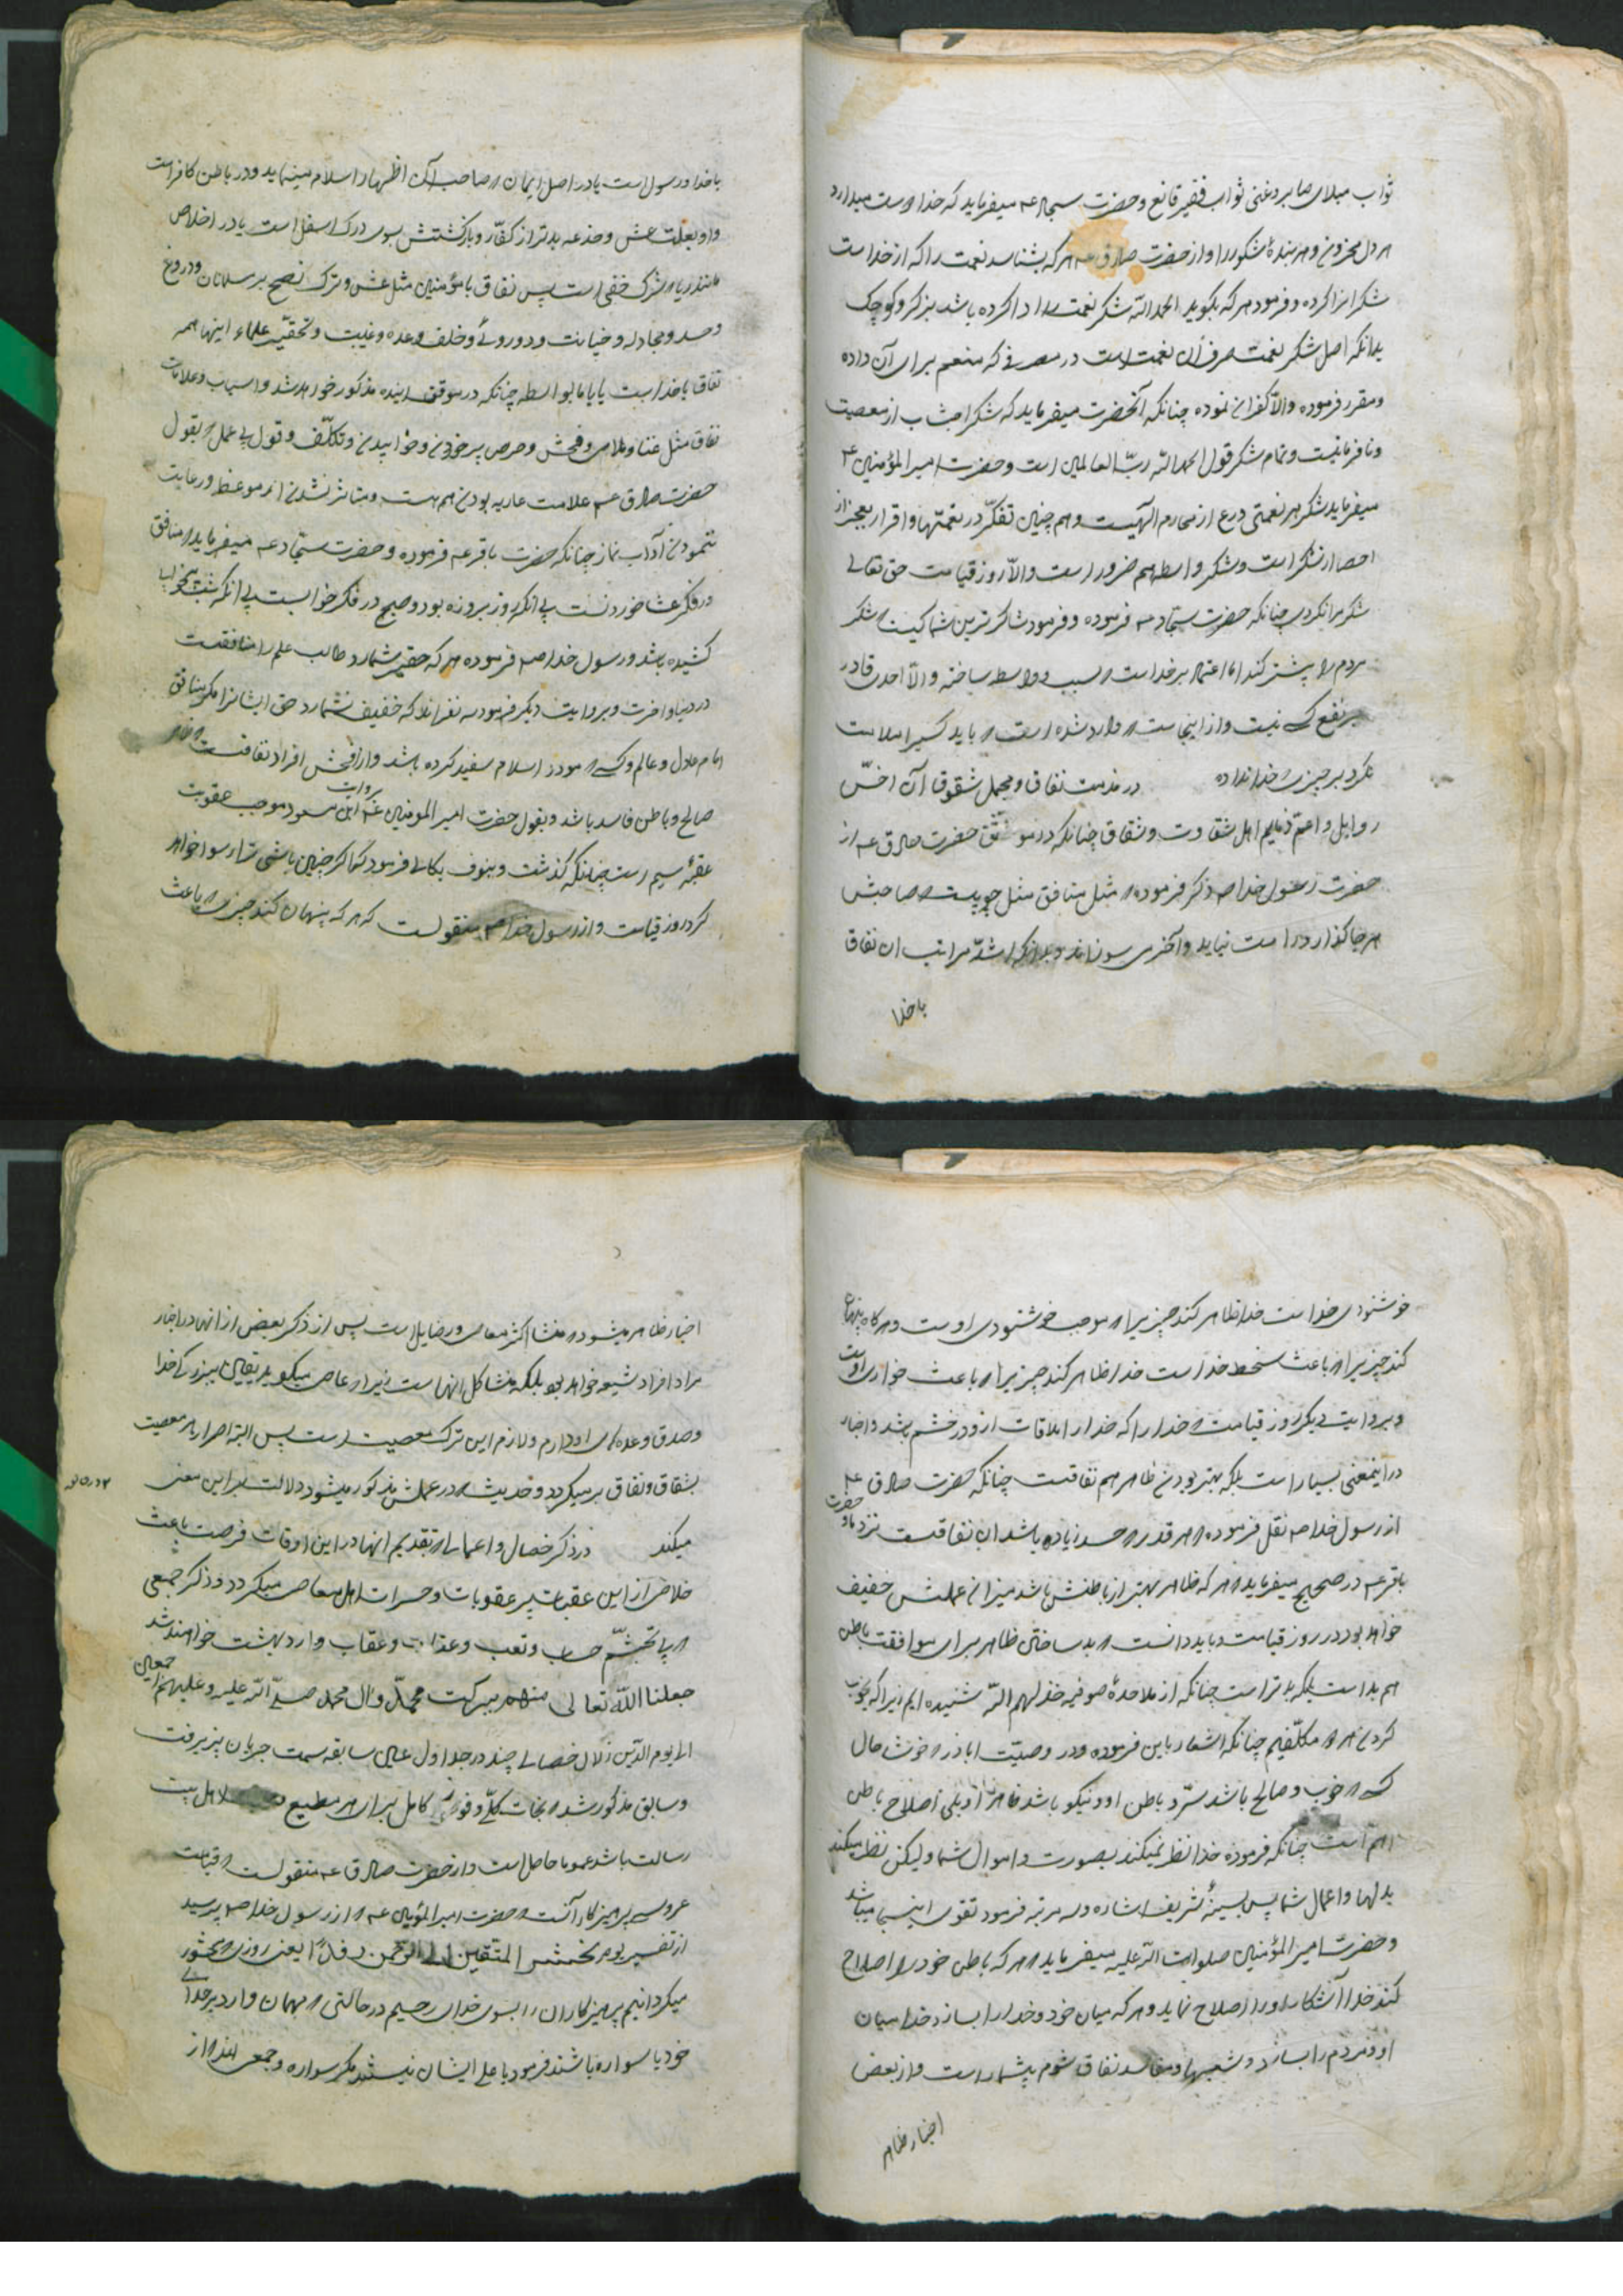 ثواب مبتلای صابر و غنی ثواب فقیر قانع و حضرت سجاد عه میفرماید که خدا دوست میدارد
هر دل محزون و هر بندهٔ شکور را و از حضرت صادق عه هر که بشناسد نعمت را که از خداست
شکر انرا کرده و فرمود هر که بگوید الحمد الله شکر نعمت را ادا کرده باشد بزرک و کوچک
بدانکه اصل شکر نعمت صرف ان نعمت است در مصرفی که منعم برای آن داده
و مقرر فرموده والا کفران نموده چنانکه آنحضرت میفرماید که شکر اجتناب از معصیت
و نافرمانیست و تمام شکر قول الحمد الله ربّ العالمین است و حضرت امیر المؤمنین ع
میفرماید شکر هر نعمتی ورع از محارم الهیست و هم چنین تفکّر در نعمتها و اقرار بعجز از
احصا از شکر است و شکر واسطه هم ضرور است والّا روز قیامت حق تعالی
شکر مرا نکردی چنانکه حضرت سجّاد عه فرموده و فرمود شاکرترین شما کیست شکر
مردم را بیشتر کند اما اعتماد بر خداست سبب و واسطه ساخته والّا احدی قادر
بر نفع کسی نیست و از اینجاست وارد شده است باید کسیرا ملامت
نکرد بر چیزی خدا نداده در مذمت نفاق و مجمل شقوق آن اخسّ
رذایل و اعمّ ذمایم اهل شقاوت و شقاق چنانکه در موثّق حضرت صادق عه از
حضرت رسول خدا صه ذکر فرموده مثل منافق مثل چوبیست صاحبش
هر جا گذارد راست نیاید و آخر می سوزاند و بدانکه اشدّ مراتب ان نفاق
با خدا
با خدا و رسول است یا در اصل ایمان صاحب آن اظهار اسلام مینماید و در باطن کافر است
و او بعلت غش و خدعه بدتر از کفّار و بازگشتش بسوی درک اسفل است یا در اخلاص
مانند ریا شرک خفی است پس نفاق با مؤمنین مثل غش و ترک نصح بر مسلمانان و دروغ
و حسد و مجادله و خیانت و دوروئی و خلف وعده و غیبت و تحقیر علماء اینها همه
نفاق با خداست یا بواسطه چنانکه در موقف اینده مذکور خواهد شد و اسباب و علامات
نفاق مثل غنا و ملاهی و فحش و حرص بر خوردن و خوابیدن و تکلّف و قول بی عمل بقول
حضرت صادق عه علامت عاریه بودن هم هست و متاثر نشدن از موعظه و رعایت
ننمودن آداب نماز چنانکه حضرت باقر عه فرموده و حضرت سجّاد عه میفرماید منافق
در فکر عشا خوردنست بی انکه روز بروزه بود و صبح در فکر خوابست بی انکه شب بیخوابی
کشیده باشد و رسول خدا صه فرموده هر که حقیر شمارد طالب علم را منافقست
در دنیا و اخرت و بروایت دیگر فرمود سه نفرند که خفیف نشمارد حق ایشانرا مگر منافق
امام عادل و عالم و کسی مو در اسلام سفید کرده باشد و از افحش افراد نفاقست
صالح و باطن فاسد باشد و بقول حضرت امیر المومنین عه بروایت ابن مسعود موجب عقوبت
عقبهٔ سیم است چنانکه گذشت و بنوف بکالی فرمود که اگر چنین باشی ترا رسوا خواهد
کرد روز قیامت و از رسول خدا صه منقولست که هر که پنهان کند چیزی باعث
خوشنودی خداست خدا ظاهر کند چیزیرا موجب خوشنودی اوست و هر که پنهان
کند چیزیرا باعث سخط خداست خدا ظاهر کند چیزیرا باعث خواری اوست
و بروایت دیگر روز قیامت خدا را که خدا را ملاقات از او در خشم باشد و اخبار
در اینمعنی بسیار است بلکه بهتر بودن ظاهر هم نفاقست چنانکه حضرت صادق ع
از رسول خدا صه نقل فرموده هر قدر حسد زیاده باشد ان نفاقست نزد ما و حضرت
باقر عه در صحیح میفرماید هر که ظاهرش بهتر از باطنش باشد میزان عملش خفیف
خواهد بود در روز قیامت و باید دانست بد ساختن ظاهر برای موافقت باطن
هم بداست بلکه بدتر است چنانکه از ملاحدهٔ صوفیه خذلهم الله شنیده ایم زیرا که بخوب
کردن هر دو مکلّفیم چنانکه اشعار باین فرموده و در وصیّت اباذر خوشا حال
کسی خوب و صالح باشد سرّ و باطن او و نیکو باشد ظاهر او بلی اصلاح باطن
اهم است چنانکه فرموده خدا نظر نمیکند بصورت و اموال شما ولیکن نظر میکند
بدلها و اعمال شما پس بسینهٔ شریف اشاره و سه مرتبه فرمود تقوی اینجا میباشد
و حضرت امیر المؤمنین صلوات الله علیه میفرماید هر که باطن خود را اصلاح
کند خدا آشکار او را اصلاح نماید و هر که میان خود و خدا را بسازد خدا میان
او و مردم را بسازد و شعبها و مفاسد نفاق شوم بیشمار است و از بعض
اخبار ظاهر
اخبار ظاهر میشود منشا اکثر معاصی و رذایل است پس از ذکر بعض از انها در اخبار
مراد افراد شیعه خواهد بود بلکه منشا کل انهاست زیرا عاصی میگوید یقین ببزرگی خدا
و صدق وعدهای او دارم و لازم این ترک معصیت است پس البته اصرار بر معصیت
بشقاق و نفاق بر میگردد و حدیث در عملش مذکور میشود دلالت بر این معنی
میکند در ذکر خصال و اعمالی تقدیم انها در این اوقات فرصت باعث
خلاص از این عقبات پر عقوبات و حسرات اهل معاصی میگردد و ذکر جمعی
بی تجشّم حساب و تعب و عذاب و عقاب وارد بهشت خواهند شد
جعلنا الله تعالی منهم ببرکت محمّد و ال محمد صلّی الله علیه و علیهم اجمعین
الی یوم الدّین زلال خصالی چند در جداول عین سابقه سمت جریان پذیرفت
و سابق مذکور شد نجات کلّی و فوز کامل برای هر مطیع اهل بیت
رسالت باشد عموما حاصل است و از حضرت صادق عه منقولست
عروسی پرهیزکار آنست حضرت امیر المؤمنین عه از رسول خدا صه پرسید
از تفسیر یوم نحشر المتقین الی الرّحمن وفدًا یعنی روزی محشور
میگردانیم پرهیزکاران را بسوی خدای رحیم در حالتی مهمان وارد بر خدای
خود یا سواره باشند فرمود یا علی ایشان نیستند مگر سواره و جمعی اند از